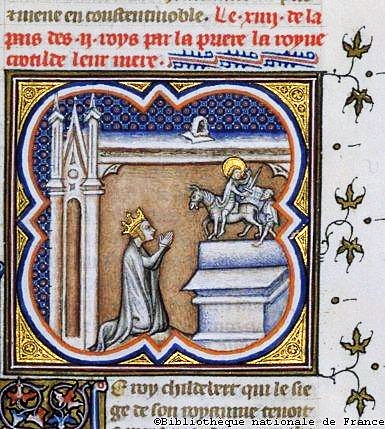 amene en constentinoble. Le xiiii. de la
pais des .ii. roys par la priere la royne
crotilde leur mere.
E roy childebert qui le sie
ge de son royaume tenoit
©Bibliothèque nationale de France